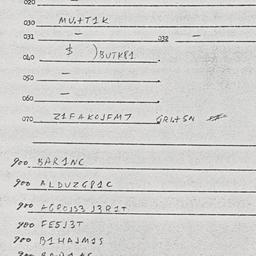 020 –
030 MU+T1K
031 – 032 –
040 $ )BUTKR1
050 –
060 –
070 Z1FAKOJFM7 GRL+SN
900 BAR1NC
900 ALDUZGP1C
900 AGPOJ33 J3R1T
900 FE5J3T
900 B1HAJM1S